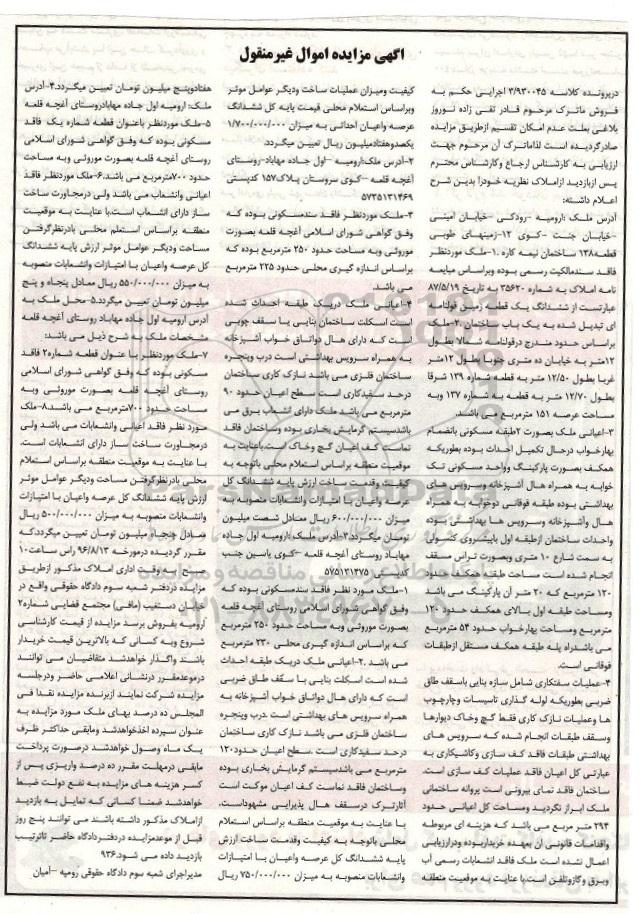 آگهی مزایده اموال غیرمنقول
درپرونده کلاسه ۳/۹۳۰۰۴۵ اجرایی حکم به
فروش ماترک مرحوم قادر تقی زاده نوروز
بلاغی بعلت عدم امکان تقسیم ازطریق مزایده
صادرگردیده است لذاماترک آن مرحوم جهت
ارزیابی به کارشناس ارجاع وکارشناس محترم
پس ازبازدید ازاملاک نظریه خودرا بدین شرح
اعلام داشته:
آدرس ملک :ارومیه -رودکی -خیابان امینی
-خیابان جنت -کوی ۱۲-زمینهای طوبی
قطعه۱۳۸ ساختمان نیمه کاره .۱-ملک موردنظر
فاقد سندمالکیت رسمی بوده وبراساس مبایعه
نامه املاک به شماره ۳۵۶۲۰ به تاریخ ۸۷/۵/۱۹
عبارتست از ششدانگ یک قطعه زمین قولنامه
ای تبدیل شده به یک باب ساختمان .۲-ملک
براساس حدود مندرج درقولنامه شمالا بطول
۱۲متر به خیابان ده متری جنوبا بطول ۱۲متر
غربا بطول ۱۲/۵۰ متر به قطعه شماره ۱۳۹ شرقا
بطول ۱۲/۷۰ متر به قطعه به شماره ۱۳۷ وبه
مساحت عرصه ۱۵۱ مترمربع می باشد.
۳-اعیانی ملک بصورت ۲طبقه مسکونی بانضمام
بهارخواب درحال تکمیل احداث بوده بطوریکه
همکف بصورت پارکینگ وواحد مسکونی تک
خوابه به همراه هال آشپزخانه وسرویس های
بهداشتی بوده طبقه فوقانی دوخوابه به همراه
هال وآشپزخانه وسرویس ها بهداشتی بوده
واحداث ساختمان ازطبقه اول باپیشروی کنسول
به سمت شارع ۱۰ متری وبصورت تراس مسقف
انجام شده است مساحت طبقه همکف حدود
۱۲۰ مترمربع که ۲۰ متر آن پارکینگ می باشد
ومساحت طبقه اول بالای همکف حدود ۱۲۰
مترمربع ومساحت بهارخواب حدود ۵۴ مترمربع
می باشدراه پله طبقه همکف مستقل ازطبقات
فوقانی است.
۴-عملیات سفتکاری شامل سازه بنایی باسقف طاق
ضربی بطوریکه لوله گذاری تاسیسات وچارچوب
ها وعملیات نازک کاری فقط گچ وخاک دیوارها
وسقف طبقات انجام شده که سرویس های
بهداشتی طبقات فاقد کف سازی وکاشیکاری به
عبارتی کل اعیان فاقد عملیات کف سازی است.
ساختمان فاقد نمای بیرونی است پروانه ساختمانی
ملک ابراز نگردید ومساحت کل اعیانی حدود
۲۹۴ متر مربع می باشد که هزینه ای مربوطه
واقدامات قانونی آن بعهده خریداربوده ودرارزیابی
اعمال نشده است ملک فاقد انشعابات رسمی آب
وبرق وگازوتلفن است.با عنایت به موقعیت منطقه
کیفیت ومیزان عملیات ساخت ودیگر عوامل موثر
وبراساس استعلام محلی قیمت پایه کل ششدانگ
عرصه واعیان احداثی به میزان ۱/۷۰۰/۰۰۰/۰۰۰
یکصدوهفتادمیلیون ریال تعیین میگردد.
۲-آدرس ملک:ارومیه -اول جاده مهاباد-روستای
آغچه قلعه -کوی سروستان پلاک۱۵۷ کدپستی
۵۷۳۵۱۳۱۴۶۹
۳-ملک موردنظر فاقد سندمسکونی بوده که
وفق گواهی شورای اسلامی آغچه قلعه بصورت
موروثی وبه مساحت حدود ۲۵۰ مترمربع بوده که
براساس اندازه گیری محلی حدود ۲۲۵ مترمربع
می باشد.
۴-اعیانی ملک دریک طبقه احداث شده
است اسکلت ساختمان بنایی با سقف چوبی
است که دارای هال دواتاق خواب آشپزخانه
به همراه سرویس بهداشتی است درب وپنجره
ساختمان فلزی می باشد نازک کاری ساختمان
درحد سفیدکاری است سطح اعیان حدود ۹۰
مترمربع می باشد ملک دارای انشعاب برق می
باشدسیستم گرمایش بخاری بوده وساختمان فاقد
نماست کف اعیان گچ وخاک است.باعنایت به
موقعیت منطقه براساس استعلام محلی باتوجه به
کیفیت وقدمت ساخت ارزش پایه ششدانگ کل
عرصه واعیان با امتیازات وانشعابات منصوبه به
میزان ۶۰۰/۰۰۰/۰۰۰ ریال معادل شصت میلیون
تومان میگردد.۳-آدرس ملک :ارومیه اول جاده
مهاباد روستای آغچه قلعه -کوی یاسین جنب
کدپستی ۵۷۵۱۳۱۴۷۵
۱-ملک مورد نظر فاقد سندمسکونی بوده که
وفق گواهی شورای اسلامی روستای آغچه قلعه
بصورت موروثی وبه مساحت حدود ۲۵۰ مترمربع
که براساس اندازه گیری محلی ۲۳۰ مترمربع
می باشد .۲-اعیانی ملک دریک طبقه احداث
شده است اسکلت بنایی با سقف طاق ضربی
است که دارای هال دواتاق خواب آشپزخانه به
همراه سرویس های بهداشتی است .درب وپنجره
ساختمان فلزی می باشد نازک کاری ساختمان
درحد سفیدکاری است .سطح اعیان حدود۱۲۰
مترمربع می باشدسیستم گرمایش بخاری بوده
وساختمان فاقد نماست کف اعیان موکت است
آثارترک درسقف هال پذیرایی مشهوداست.
با عنایت به موقعیت منطقه براساس استعلام
محلی باتوجه به کیفیت وقدمت ساخت ارزش
پایه ششدانگ کل عرصه واعیان با امتیازات
وانشعابات منصوبه به میزان ۷۵۰/۰۰۰/۰۰۰ ریال
هفتادوپنج میلیون تومان تعیین میگردد.۴-آدرس
ملک: ارومیه اول جاده مهابادروستای آغچه قلعه
۵-ملک موردنظر باعنوان قطعه شماره یک فاقد
مسکونی بوده که وفق گواهی شورای اسلامی
روستای آغچه قلعه بصورت موروثی وبه مساحت
حدود ۷۰۰مترمربع می باشد.۶-ملک موردنظر فاقد
اعیانی وانشعاب می باشد ولی درمجاورت ساخت
ساز دارای انشعاب است.با عنایت به موقعیت
منطقه براساس استعلم محلی بادرنظرگرفتن
مساحت ودیگر عوامل موثر ارزش پایه ششدانگ
کل عرصه واعیان با امتیازات وانشعابات منصوبه
به میزان ۵۵۰/۰۰۰/۰۰۰ ریال معادل پنجاه و پنج
میلیون تومان تعیین میگردد.۵-محل ملک به
آدرس ارومیه اول جاده مهاباد روستای آغچه قلعه
مشخصات ملک به شرح ذیل می باشد:
۷-ملک موردنظر با عنوان قطعه شماره۲ فاقد
مسکونی بوده که وفق گواهی شورای اسلامی
روستای آغچه قلعه بصورت موروثی وبه
مساحت حدود ۷۰۰مترمربع می باشد.۸-ملک
مورد نظر فاقد اعیانی وانشعابات می باشد ولی
درمجاورت ساخت ساز دارای انشعابات است.
با عنایت به موقعیت منطقه براساس استعلام
محلی بادرنظرگرفتن مساحت ودیگر عوامل موثر
ارزش پایه ششدانگ کل عرصه واعیان با امتیازات
وانشعابات منصوبه به میزان ۵۰۰/۰۰۰/۰۰۰ ریال
معادل پنجاه میلیون تومان تعیین میگردد.که
مقرر گردیده درمورخه ۹۶/۸/۱۳ راس ساعت۱۰
صبح به وقت اداری املاک مذکور ازطریق
مزایده دردفتر شعبه سوم دادگاه حقوقی واقع در
خیابان دستغیب (مافی) مجتمع قضایی شماره۲
ارومیه بفروش برسد مزایده از قیمت کارشناسی
شروع وبه کسانی که بالاترین قیمت خریدار
باشند واگذار خواهدشد متقاضیان می توانند
درموعدمقرر درنشانی اعلامی حاضر ودرجلسه
مزایده شرکت نمایند ازبرنده مزایده نقدا فی
المجلس ده درصد بهای ملک مورد مزایده به
عنوان سپرده اخذخواهدشد ومابقی حداکثر ظرف
یک ماه وصول خواهدشد درصورت پرداخت
مابقی درمهلت مقرر ده درصد واریزی پس از
کسر هزینه های مزایده به نفع دولت ضبط
خواهدشد ضمنا کسانی که تمایل به بازدید
ازاملاک مذکور داشته باشند می توانند پنج روز
قبل از موعدمزایده دردفتردادگاه حاضر تاترتیب
بازدید داده می شود.۹۳۶
مدیراجرای شعبه سوم دادگاه حقوقی رومیه -امیان